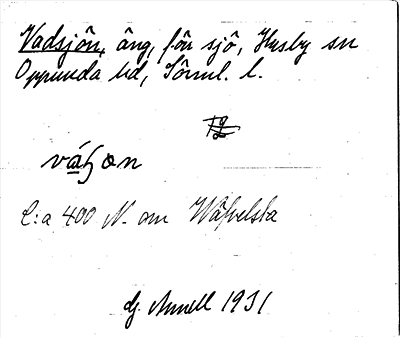 Vadsjön, äng, förr sjö, Husby sn
Oppunda hd, Söml. l.
váʃon
C:a 400 N. om Wäfvelsta
Annell 1931